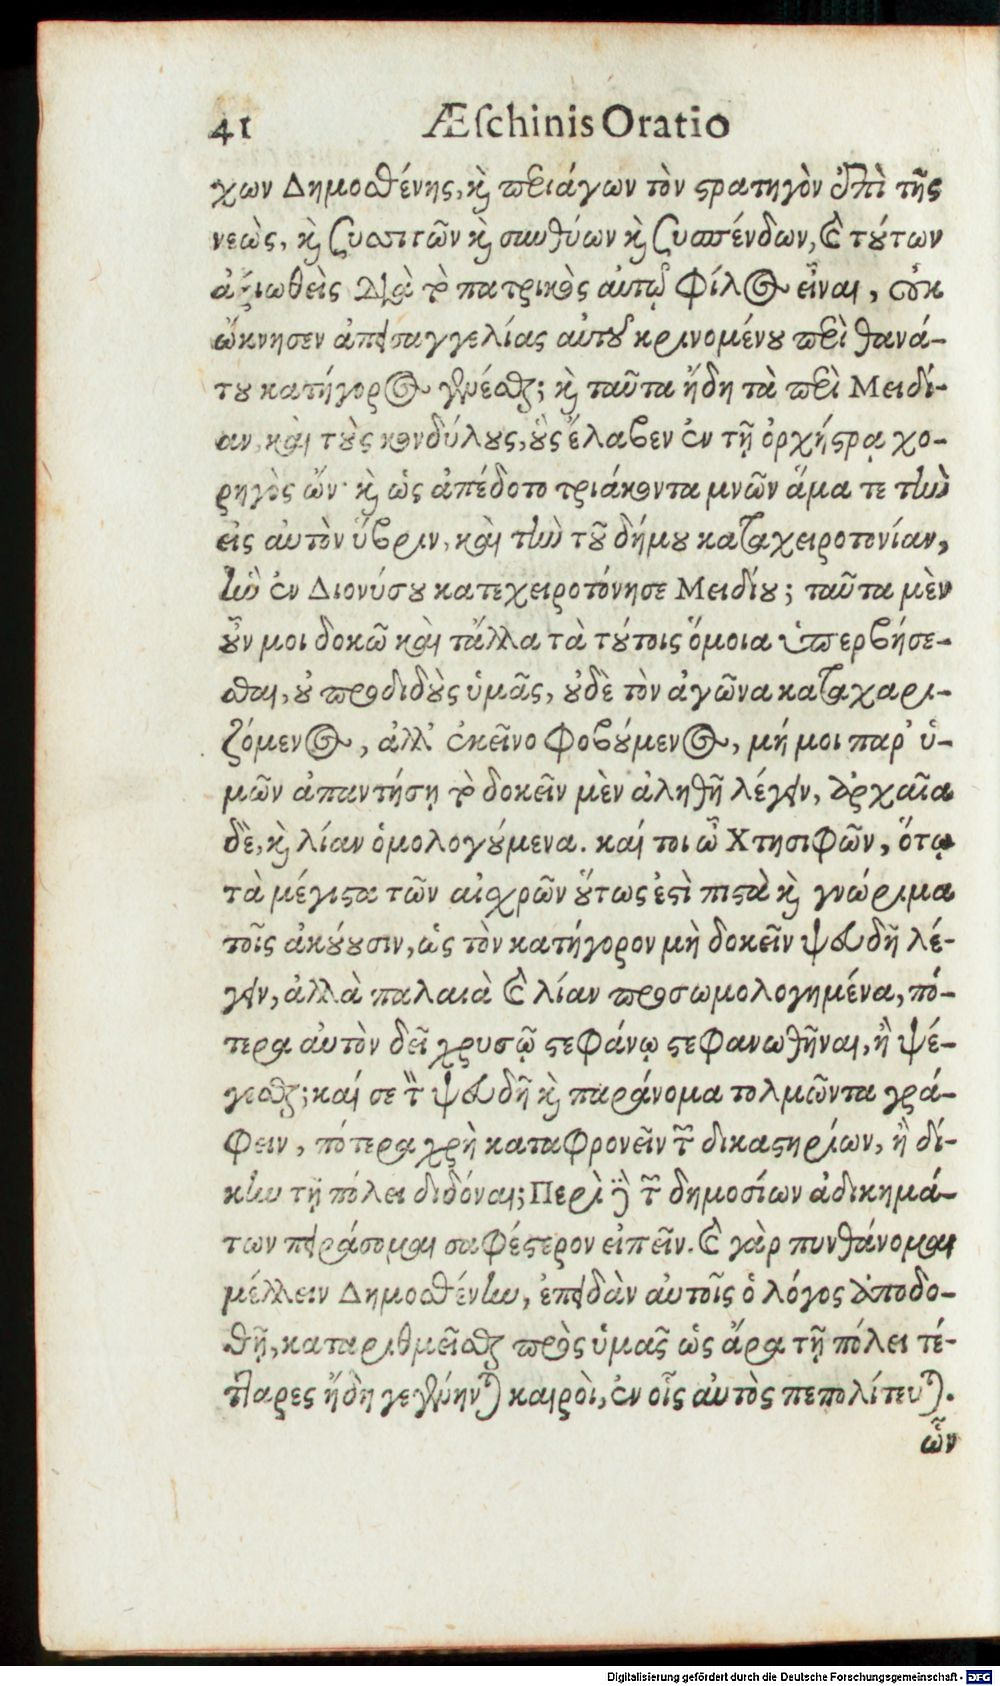 41 Æſchinis Oratio
χων Δημοσθένης, καὶ περιάγων τὸν στρατηγὸν ἐπὶ τῆς
νεὼς, καὶ συσσιτῶν καὶ συνθύων καὶ συσπένδων, καὶ τούτων
ἀξιωθεὶς διὰ τὸ πατρικὸς αὐτῷ φίλος εἶναι, οὐκ
ὤκνησεν ἀπ' εἰσαγγελίας αὐτοῦ κρινομένου περὶ θανά-
του κατήγορος γενέσθαι; καὶ ταῦτα ἤδη τὰ περὶ Μειδί-
αν, καὶ τοὺς κονδύλους, οὓς ἔλαβεν ἐν τῇ ὀρχήστρᾳ χο-
ρηγὸς ὤν· καὶ ὡς ἀπέδοτο τριάκοντα μνῶν ἅμα τε τὴν
εἰς αὐτὸν ὕβριν, καὶ τὴν τοῦ δήμου καταχειροτονίαν,
ἣν ἐν Διονύσου κατεχειροτόνησε Μειδίου; ταῦτα μὲν
οὖν μοι δοκῶ καὶ τἄλλα τὰ τούτοις ὅμοια ὑπερβήσε-
σθαι, οὐ προδιδοὺς ὑμᾶς, οὐδὲ τὸν ἀγῶνα καταχαρι-
ζόμενος, ἀλλ' ἐκεῖνο φοβούμενος, μή μοι παρ' ὑ-
μῶν ἀπαντήσῃ τὸ δοκεῖν μὲν ἀληθῆ λέγειν, ἀρχαῖα
δὲ, καὶ λίαν ὁμολογούμενα. καί τοι ὦ Χτησιφῶν, ὅτῳ
τὰ μέγιστα τῶν αἰσχρῶν οὕτως ἐστὶ πιστὰ καὶ γνώριμα
τοῖς ἀκούουσιν, ὡς τὸν κατήγορον μὴ δοκεῖν ψευδῆ λέ-
γειν, ἀλλὰ παλαιὰ καὶ λίαν προσωμολογημένα, πό-
τερα αὐτὸν δεῖ χρυσῷ στεφάνῳ στεφανωθῆναι, ἢ ψέ-
γεσθαι; καί σε τὸν ψευδῆ καὶ παράνομα τολμῶντα γρά-
φειν, πότερα χρὴ καταφρονεῖν τῶν δικαστηρίων, ἢ δί-
κην τῇ πόλει διδόναι; Περὶ δὲ τῶν δημοσίων ἀδικημά-
των πειράσομαι σαφέστερον εἰπεῖν. καὶ γὰρ πυνθάνομαι
μέλλειν Δημοσθένην, ἐπειδὰν αὐτοῖς ὁ λόγος ἀποδο-
θῇ, καταριθμεῖσθαι πρὸς ὑμᾶς ὡς ἄρα τῇ πόλει τέ-
τταρες ἤδη γεγένηνται καιροὶ, ἐν οἷς αὐτὸς πεπολίτευται.
ὧν
Digitalisierung gefördert durch die Deutsche Forschungsgemeinschaft - DFG